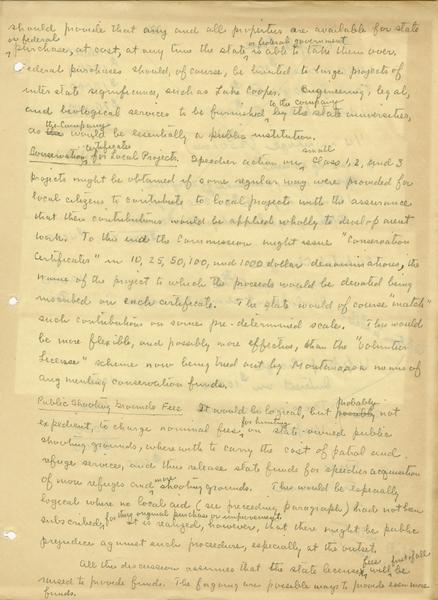 should provide that any and all properties are available for state
or federal purchase, at cost, at any time the state or federal government is able to take them over.
Federal purchases should, of course, be limited to large projects of
inter state significance, such as Lake Cooper. Engineering, legal,
and biological services to be furnished to the company by the state universities,
as the Company would be essentially a public institution.
Conservation certificates for Local Projects. Speedier action on small Class 1, 2, and 3
projects might be obtained if some regular way were provided for
local citizens to contribute to local projects with the assurance
that their contributions would be applied wholly to development
work. To this end the Commission might issue "Conservation
Certificates" in 10, 25, 50, 100, and 1000 dollar denominations, the
name of the project to which the proceeds would be devoted being
inscribed on each certificate. The state would of course "match"
such contributions on some pre-determined scale. This would
be more flexible, and possibly more effective, than the "Volunteer
License" scheme now being tried out by Montana as a means of
augmenting conservation funds.
Public Shooting Grounds Fees It would be logical, but possibly probably not
expedient, to charge nominal fees for hunting on state-owned public
shooting grounds, wherewith to carry the cost of patrol and
refuge services, and thus release state funds for speedier acquisition
of more refuges and more shooting grounds. This would be especially
logical where no local aid (see preceding paragraph) had not been
subscribed for their original purchase or improvement. It is realized, however, that there might be public
prejudice against such procedure, especially at the outset.
All the discussion assumes that the state license fees will first of all be
raised to provide funds. The foregoing are possible ways to provide even more
funds.